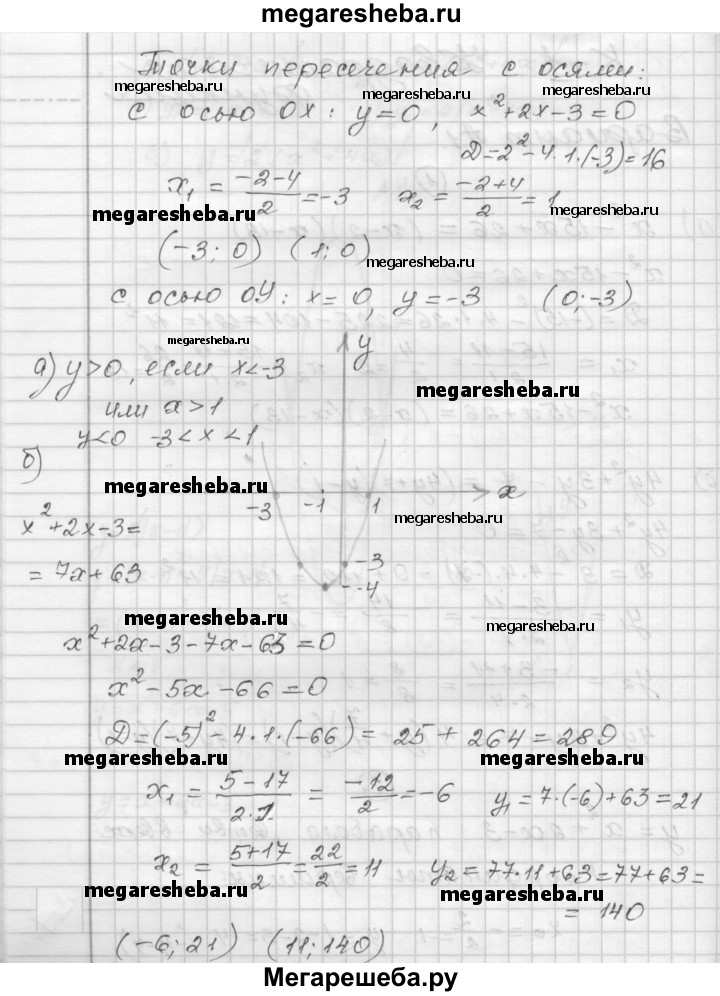 megaresheba.ru
Точки пересечения с осями:
megaresheba.ru
megaresheba.ru
с осью ОХ: y=0, x²+2x-3=0
D=2²-4·1·(-3)=16
x₁ = (-2-4)/2 = -3   x₂ = (-2+4)/2 = 1
megaresheba.ru
megaresheba.ru
(-3; 0)   (1; 0)
megaresheba.ru
с осью ОУ: x=0, y=-3   (0;-3)
megaresheba.ru
y
а) y>0, если x<-3
megaresheba.ru
или x>1
y<0   -3<x<1
б)
megaresheba.ru
x
-3   -1   1
megaresheba.ru
x²+2x-3=
-3
= 7x+63
-4
megaresheba.ru
megaresheba.ru
x²+2x-3-7x-63=0
x²-5x-66=0
D=(-5)²-4·1·(-66)= 25+264=289
megaresheba.ru
megaresheba.ru
x₁ = (5-17)/(2·1) = (-12)/2 = -6   y₁=7·(-6)+63=21
x₂ = (5+17)/2 = 22/2 = 11   y₂=77·11+63=77+63=
megaresheba.ru
megaresheba.ru
= 140
(-6;21)   (11;140)
Мегарешеба.ру